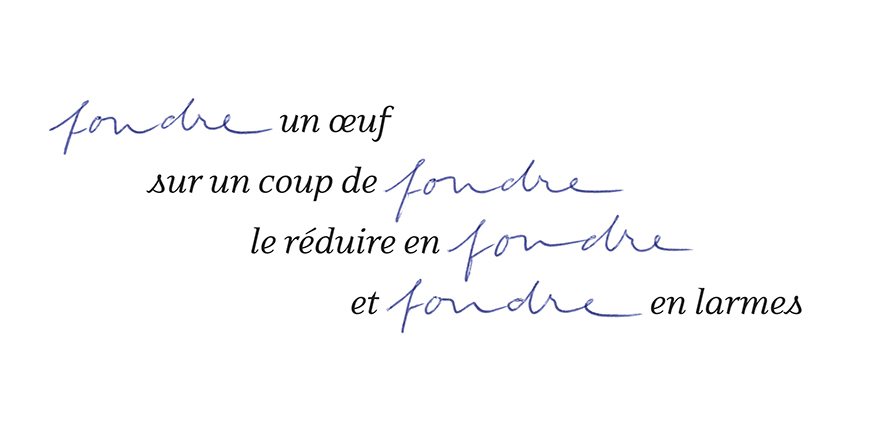 fondre un œuf
sur un coup de fondre
le réduire en fondre
et fondre en larmes